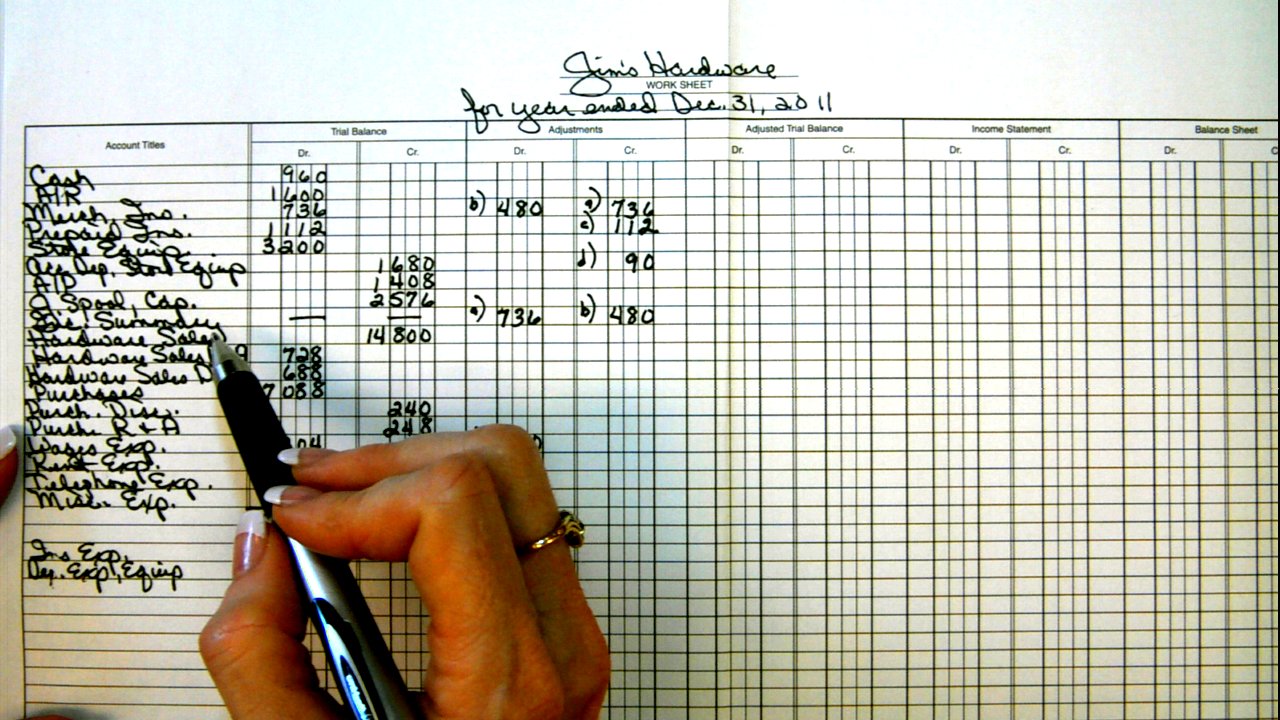 Jim's Hardware
WORK SHEET
for year ended Dec. 31, 2011
Account Titles Trial Balance Adjustments Adjusted Trial Balance Income Statement Balance Sheet
Dr. Cr. Dr. Cr. Dr. Cr. Dr. Cr. Dr. C
Cash 960
A/R 1600
Merch. Inv. 736 b) 480 a) 736
Prepaid Ins. 1112 c) 112
Store Equip. 3200
Acc. Dep. Store Equip 1680 d) 90
A/P 1408
J. Spool, Cap. 2576
Inc. Summary — — a) 736 b) 480
Hardware Sales 14800
Hardware Sales 728
Hardware Sales D 688
Purchases 7088
Purch. Disc. 240
Purch. R & A 248
Wages Exp. 04
Rent Exp.
Telephone Exp.
Misc. Exp.
Ins Exp.
Dep. Exp, Equip